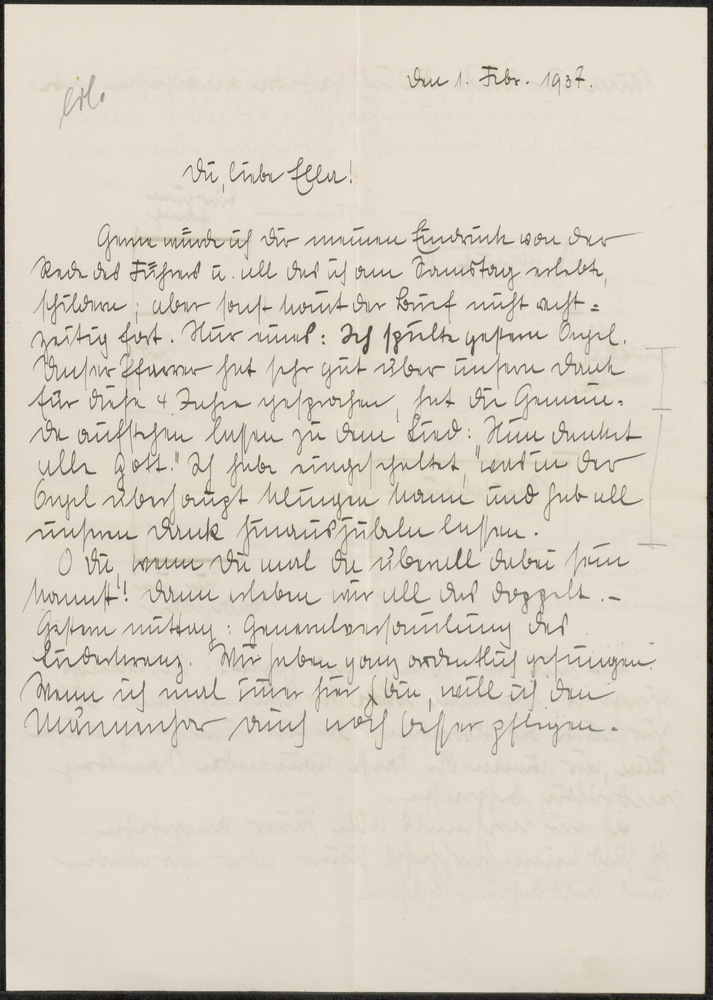 Den 1. Febr. 1937.
Du, liebe Ella!
Gerne würde ich Dir meinen Eindruck von der
Rede des Führers u. all das ich am Samstag erlebte,
schildern; aber sonst kommt der Brief nicht recht=
zeitig fort. Nur eines: Ich spielte gestern Orgel.
Unser Pfarrer hat sehr gut über unsern Dank
für diese 4 Jahre gesprochen, hat die Gemein-
de aufstehen lassen zu dem Lied: Nun danket
alle Gott." Ich habe eingeschaltet, was in der
Orgel überhaupt klingen kann und hab all
unsern Dank hinausjubeln lassen.
O Du, wenn Du mal da überall dabei sein
kannst! Dann erleben wir all das doppelt. –
Gestern mittag: Generalversammlung des
Liederkranz. Wir haben ganz ordentlich gesungen.
Wenn ich mal immer hier bin, will ich den
Männerchor auch noch besser pflegen.